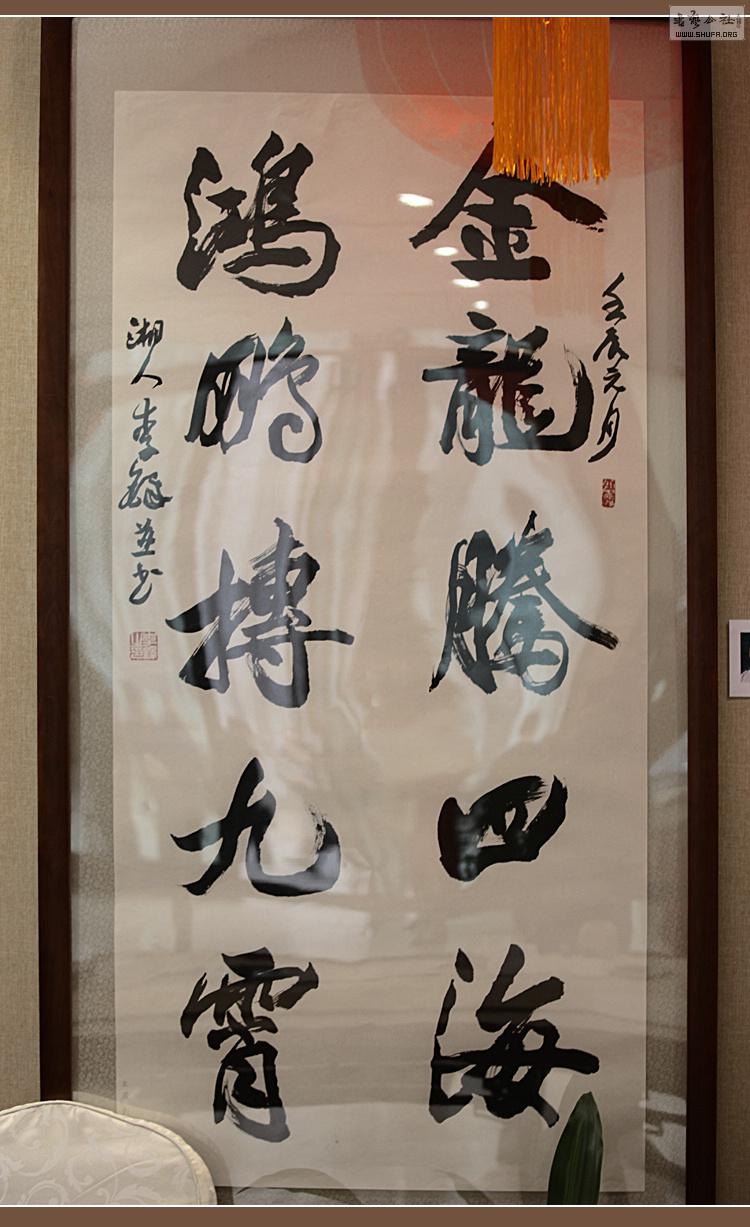 壬辰元月
金龍騰四海
鴻鵬搏九霄
湖人李
並书
书艺公社
WWW.SHUFA.ORG